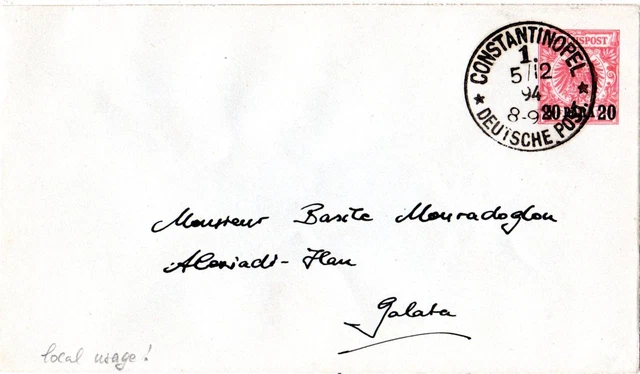 CONSTANTINOPEL
1.
5/12
94
8-9
DEUTSCHE POST.
20 PARA 20
Monsieur Basile Mouradoglou
Alexiadi-Han
Galata
local usage!